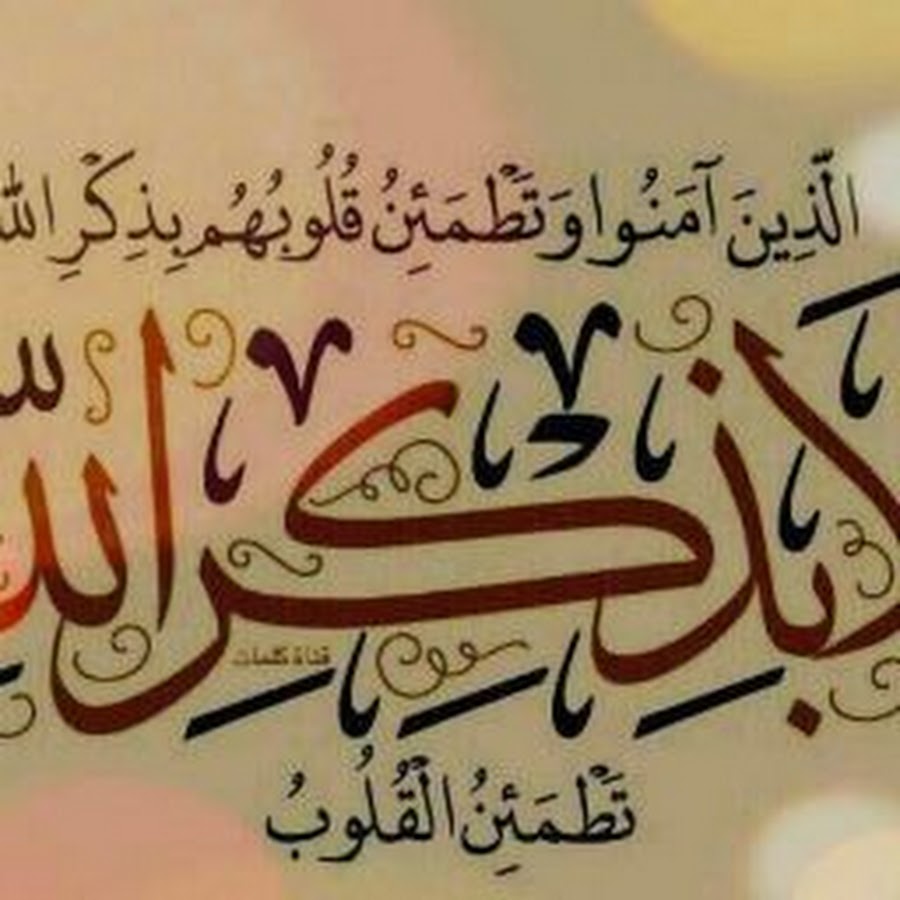 الَّذِينَ آمَنُوا وَتَطْمَئِنُ قُلُوبُهُم بِذِكْرِ الله
لا بذكر الله
قناة كلمات
تَطْمَئِنُ الْقُلُوبُ